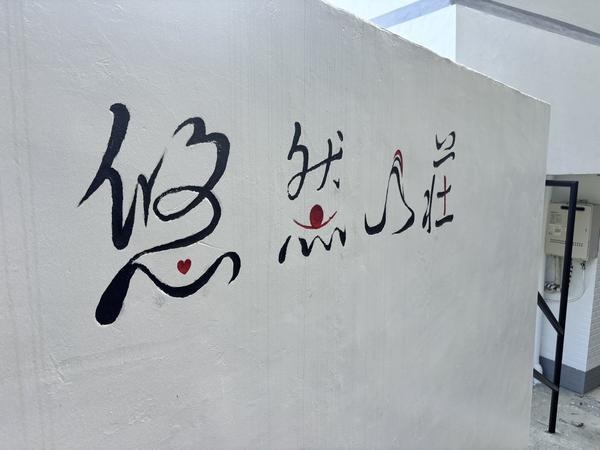 悠然山莊